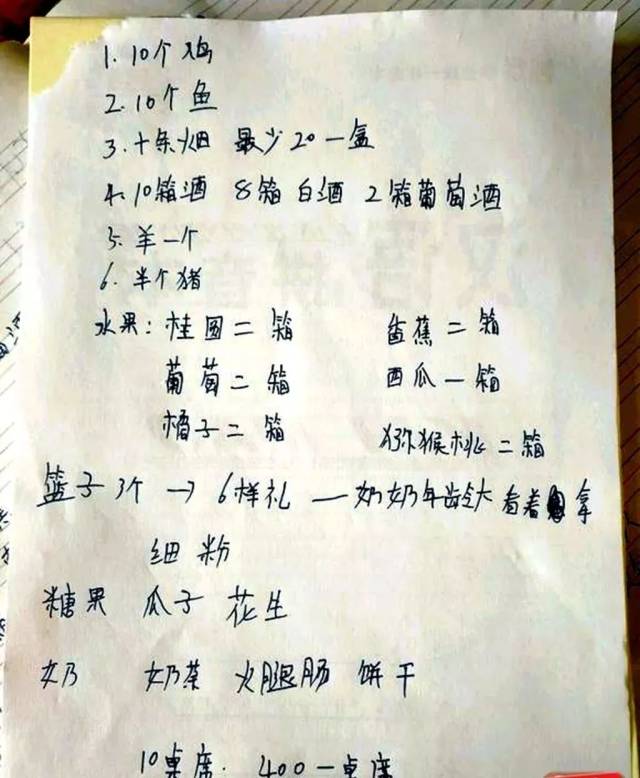 1. 10个鸡
2. 10个鱼
3. 十条烟 最少20一盒
4. 10箱酒 8箱白酒 2箱葡萄酒
5. 羊一个
6. 半个猪
水果: 桂圆二箱 香蕉二箱
葡萄二箱 西瓜一箱
橘子二箱 猕猴桃二箱
篮子3个 → 6样礼 — 奶奶年龄大看着拿
细粉
糖果 瓜子 花生
奶 奶茶 火腿肠 饼干
10桌席: 400一桌席